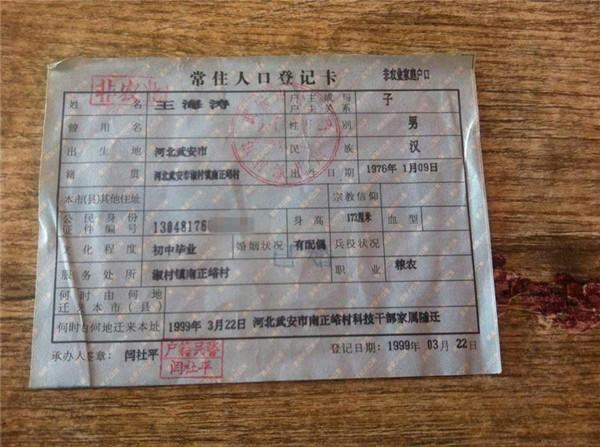 常住人口登记卡 非农业家庭户口
非农业
姓名 王海涛 户主或与户主关系 子
曾用名 性别 男
出生地 河北武安市 民族 汉
籍贯 河北武安市淑村镇南正峪村 出生日期 1976年 1月09日
本市(县)其他住址 宗教信仰
公民身份证件编号 13048176 身高 173厘米 血型
文化程度 初中毕业 婚姻状况 有配偶 兵役状况
服务处所 淑村镇南正峪村 职业 粮农
何时由何地迁来本市(县)
何时何地迁来本址 1999年 3月22日 河北武安市南正峪村科技干部家属随迁
承办人签章: 闫社平 登记日期: 1999年 03月 22日
户籍员
闫社平